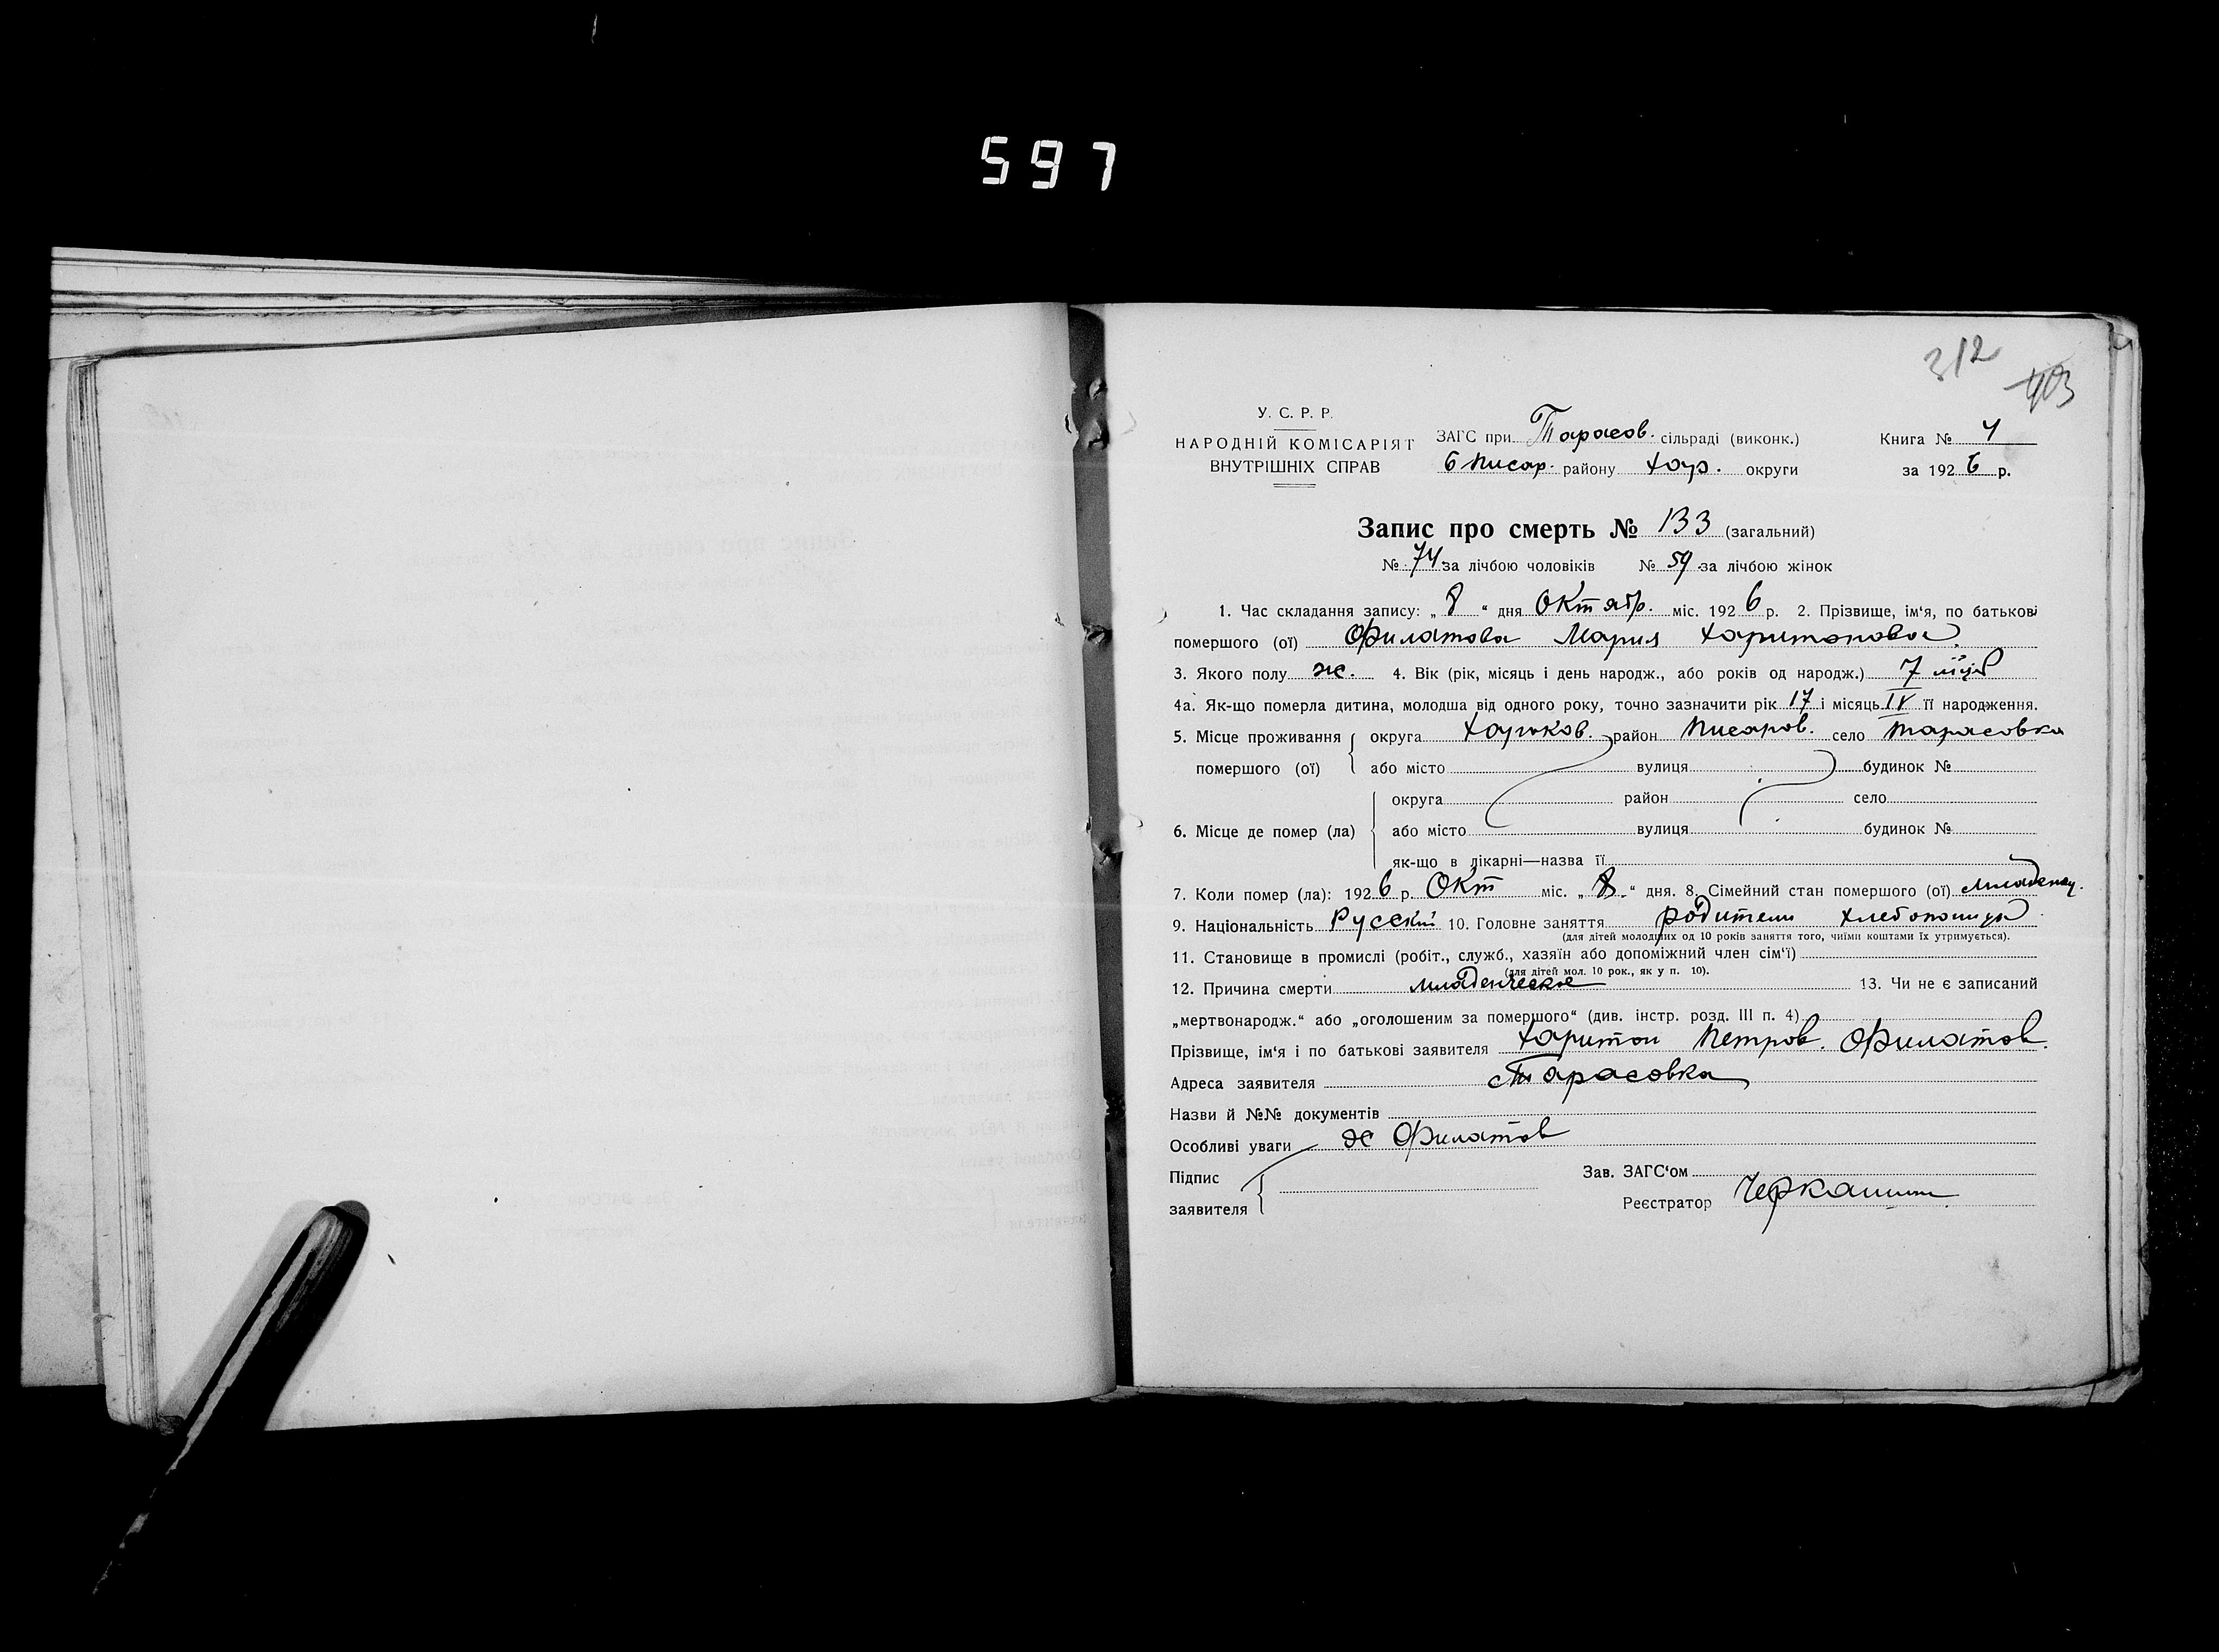 597
312
403
У. С. Р. Р.
НАРОДНІЙ КОМІСАРІЯТ
ВНУТРІШНІХ СПРАВ
ЗАГС при Тарасов. сільраді (виконк.)
Писар. району Хар. округи
Книга №
за 1926 р.
Запис про смерть № 133 (загальний)
№ 74 за лічбою чоловіків № 59 за лічбою жінок
1. Час складання запису: „8“ дня Октябр. міс. 1926 р. 2. Прізвище, ім‘я, по батькові
помершого (ої) Филатова Мария Харитонова
3. Якого полу ж. 4. Вік (рік, місяць і день народж., або років од народж.) 7
4а. Як-що померла дитина, молодша від одного року, точно зазначити рік 17 і місяць IV її народження.
5. Місце проживання округа Харьков. район Писаров. село Тарасовка
помершого (ої) або місто вулиця будинок №
округа район село
6. Місце де помер (ла) або місто вулиця будинок №
як-що в лікарні—назва її
7. Коли помер (ла): 1926 р. Окт міс. „8“ дня. 8. Сімейний стан помершого (ої) младенец.
9. Національність Русский 10. Головне заняття родители хлебопашцы
(для дітей молодших од 10 років заняття того, чиїми коштами їх утримується).
11. Становище в промислі (робіт., служб., хазяїн або допоміжний член сім‘ї)
(для дітей мол. 10 рок., як у п. 10).
12. Причина смерти младенческое 13. Чи не є записаний
„мертвонародж.“ або „оголошеним за помершого“ (див. інстр. розд. III п. 4)
Прізвище, ім‘я і по батькові заявителя Харитон Петров. Филатов.
Адреса заявителя Тарасовка
Назви й №№ документів
Особливі уваги Филатов
Підпис
заявителя
Зав. ЗАГС‘ом
Реєстратор Черкашин